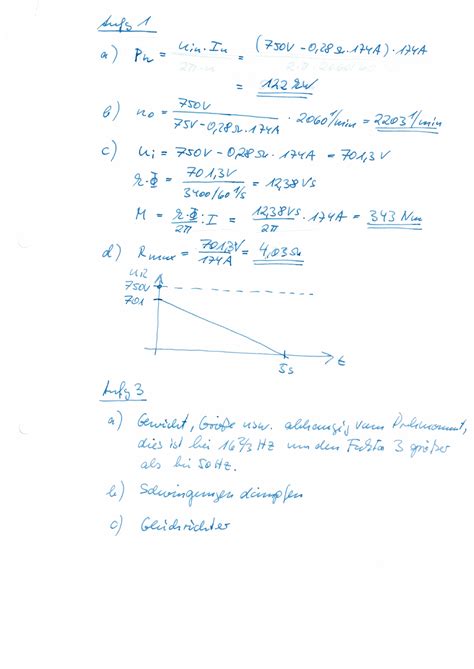 Aufg 1
a) Pn = Uin · In = (750V - 0,28Ω · 174A) · 174A
= 122 kW
b) no = 750V / 75V - 0,28Ω · 174A · 2060 1/min = 2203 1/min
c) Ui = 750V - 0,28Ω · 174A = 701,3V
k·Φ = 701,3V / 3400/60 1/s = 12,38 Vs
M = k·Φ / 2π · I = 12,38 Vs / 2π · 174A = 343 Nm
d) Rmax = 701,3V / 174A = 4,03Ω
750V
701
5s
t
Aufg 3
a) Gewicht, Größe usw. abhängig vom Drehmoment,
dies ist bei 16 2/3 Hz um den Faktor 3 größer
als bei 50 Hz.
b) Schwingungen dämpfen
c) Gleichrichter